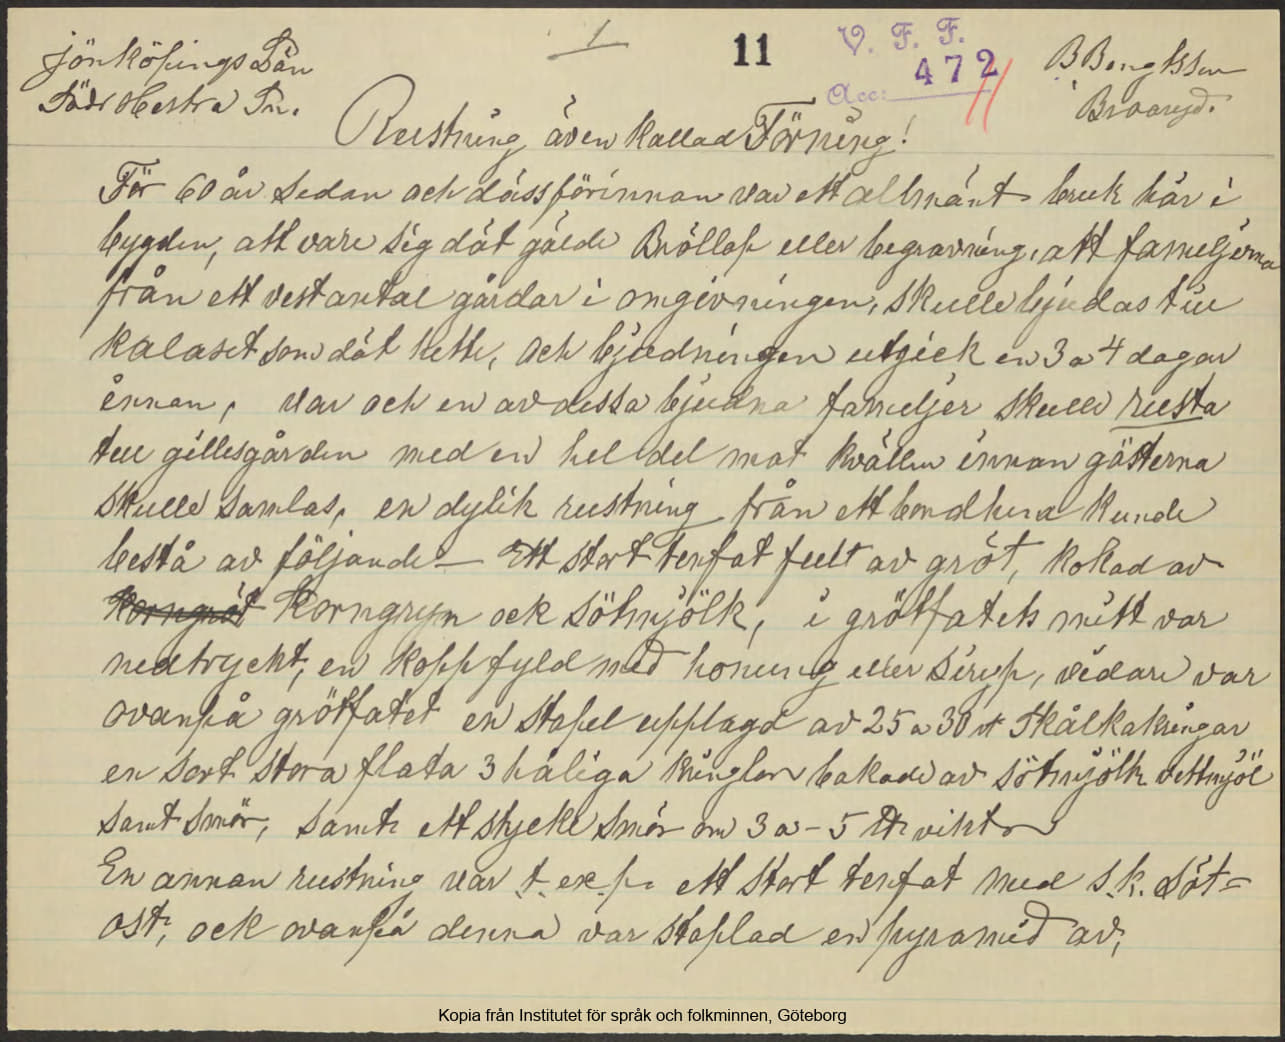 1
11
V. F. F.
Acc: 472
11
Jönköpings Län
Södr Hestra Sn.
B Bengtsson
Broaryd.
Rustning även kallad Förning!
För 60 år sedan och dässförinnan var ett allmänt bruk här i
bygden, att vare sig dät gälde Bröllop eller begravning, att familjerna
från ett vest antal gårdar i omgivningen, skulle bjudas till
kalaset som dät hette, och bjudningen utgick en 3 a 4 dagar
innan, var och en av dessa bjudna familjer skulle rusta
till gillesgården med en hel del mat kvällen innan gästerna
skulle samlas, en dylik rustning från ett bondhem kunde
bestå av följande — Ett stort tenfat fullt av gröt, kokad av
Korngröt Korngryn ock sötmjölk, i grötfatets mitt var
nedtryckt, en kopp fyld med honung eller sirup, vidare var
ovanpå grötfatet en stapel upplagd av 25 a 30 st Skålkakringar
en sort stora flata 3 håliga kringlor bakade av sötmjölk vettmjöl
samt smör, samt ett stycke smör om 3 a - 5 ℔ vikt
En annan rustning var t. ex. p. ett stort tenfat med s.k. Söt=
ost, ock ovanpå denna var staplad en pyramid av,
Kopia från Institutet för språk och folkminnen, Göteborg